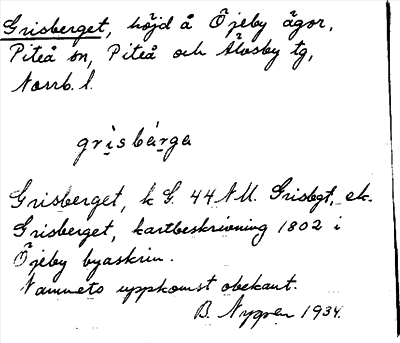 Grisberget, höjd å Öjeby ägor,
Piteå sn, Piteå och Älvsby tg,
Norrb. l.
grìsbárga
Grisberget, k G. 44 N U. Grisbgt, ek.
Grisberget, kartbeskrivning 1802 i
Öjeby byaskrin.
Namnets uppkomst obekant.
B. Nygren 1934.